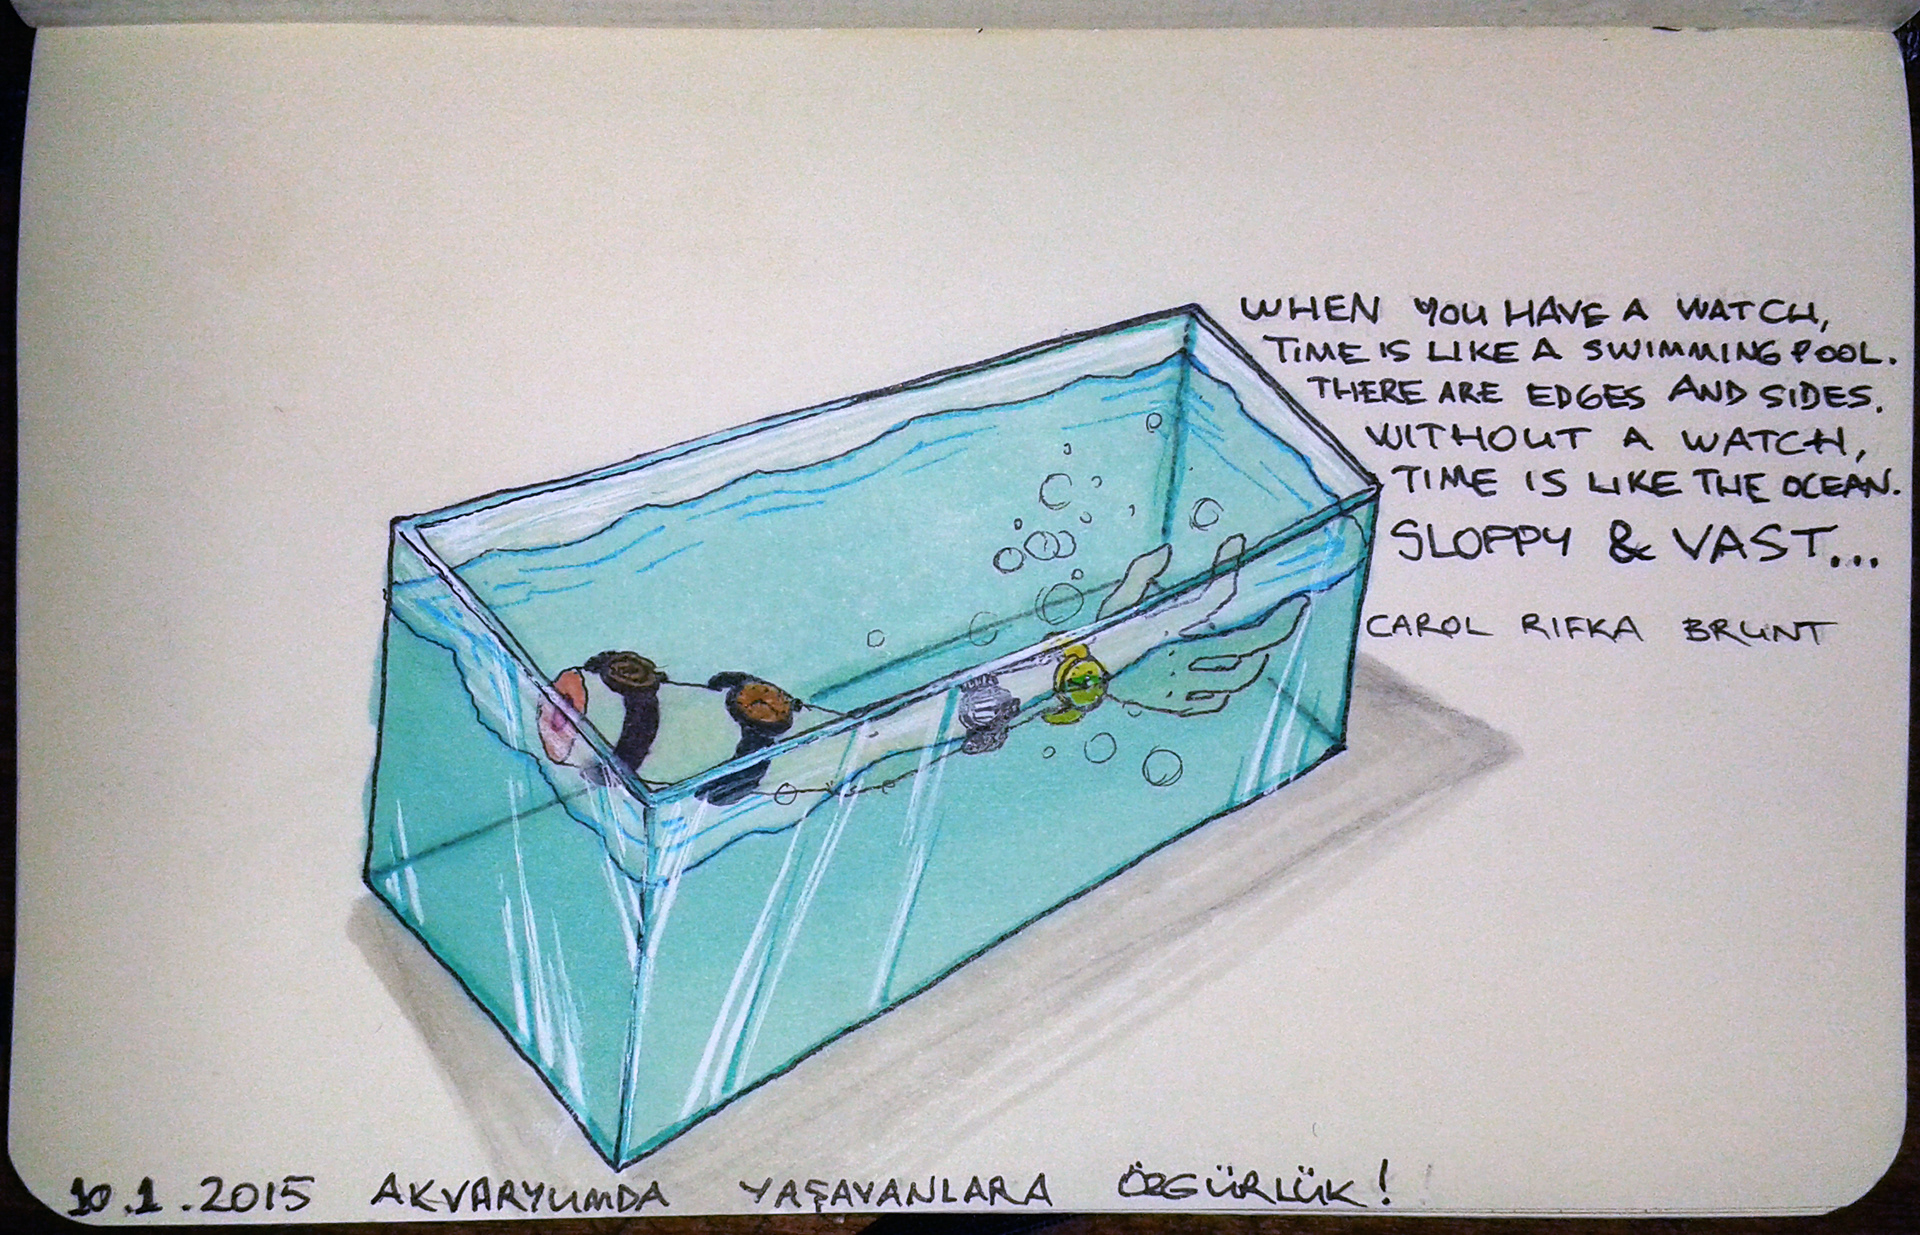 WHEN YOU HAVE A WATCH,
TIME IS LIKE A SWIMMING POOL.
THERE ARE EDGES AND SIDES.
WITHOUT A WATCH,
TIME IS LIKE THE OCEAN.
SLOPPY & VAST...
CAROL RIFKA BRUNT
10.1.2015 AKVARYUMDA YAŞAYANLARA ÖZGÜRLÜK!